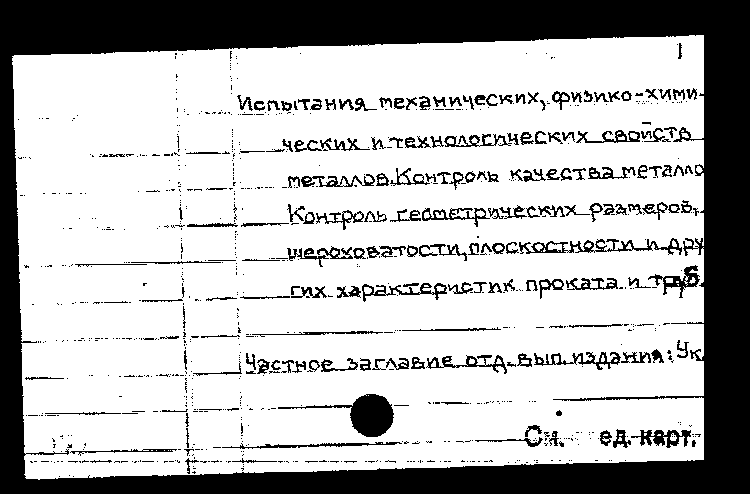 1
Испытания механических, физико-хими-
ческих и технологических свойств
металлов. Контроль качества металло
Контроль геометрических размеров,
шероховатости, плоскостности и дру
гих характеристик проката и труб.
Частное заглавие отд. вып. издания: Ук.
См. ед. карт.